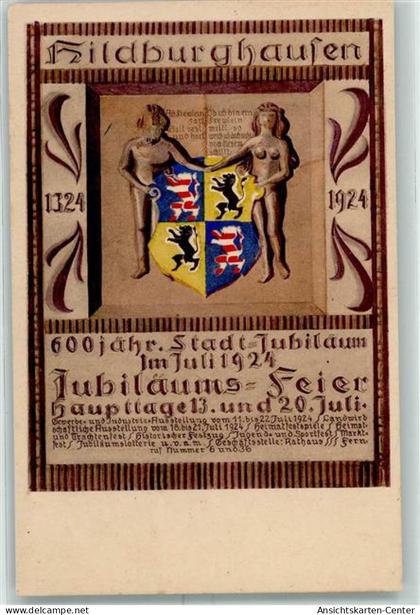 Hildburghausen
1324
1924
600 jähr. Stadt-Jubiläum
Im Juli 1924
Jubiläums-Feier
Haupttage 13. und 20. Juli.
Gewerbe- und Industrie-Ausstellung vom 11. bis 22. Juli 1924 / Landwirt
schaftliche Ausstellung vom 18. bis 21. Juli 1924 / Heimatfestspiele / Heimat-
und Trachtenfest / Historischer Festzug / Jugend- und Sportfest / Markt-
fest / Jubiläumslotterie u.v.a.m. / Geschäftsstelle: Rathaus /// Fern
ruf Nummer 6 und 36
www.delcampe.net
postkarten_center
Ansichtskarten-Center